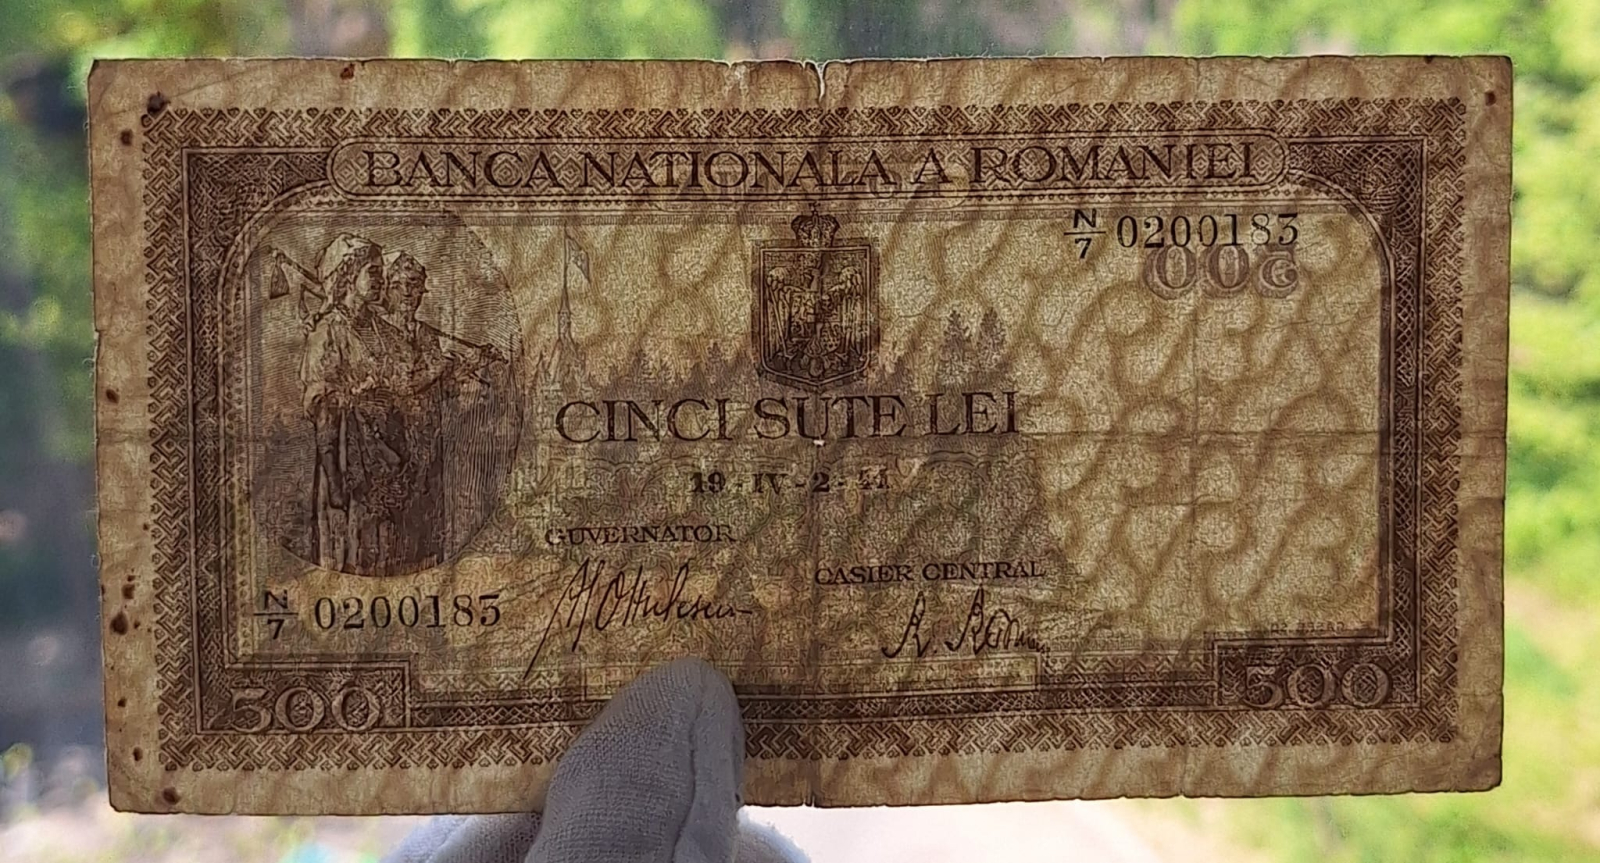 BANCA NATIONALA A ROMANIEI
N/7 0200183
500
CINCI SUTE LEI
19-IV-2-41
GUVERNATOR
CASIER CENTRAL
N/7 0200183
500 500